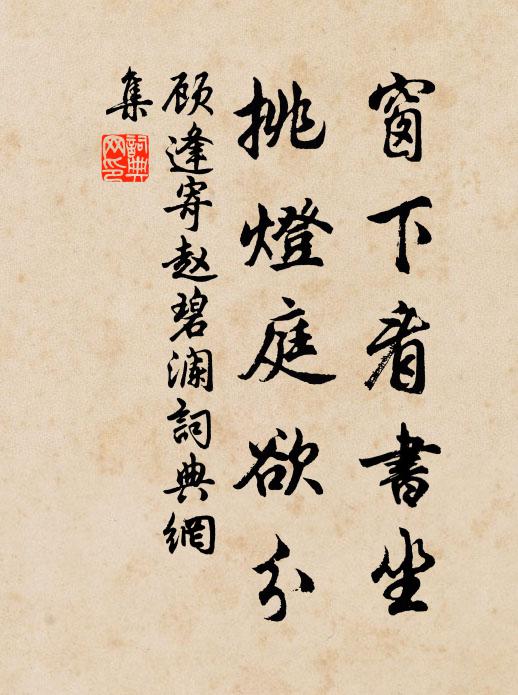 窗下看書坐
挑燈庭欲分
顾逢寄赵碧澜詞典網
集
詞典
网印